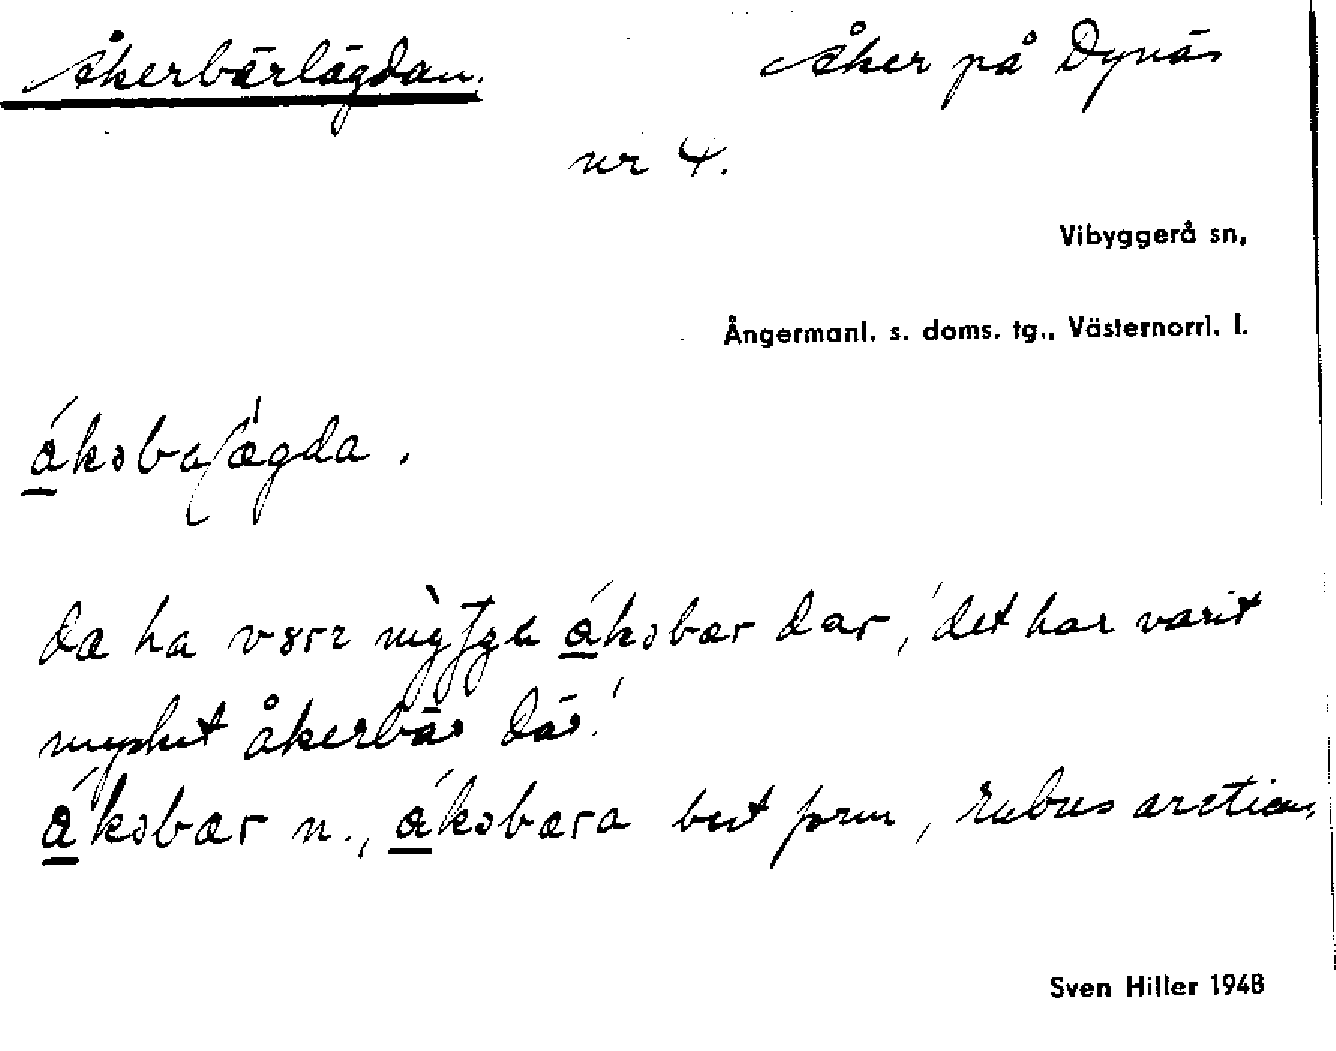 Åkerbärlägdan. Åker på Dynäs
nr 4.
Vibyggerå sn,
Ångermanl. s. doms. tg., Västernorrl. l.
ákəbaɽægda.
da ha ákəbær dar, 'det har varit
mycket åkerbär där.'
ákəbær n., ákəbæra best form, rubus arcticus
Sven Hiller 1948